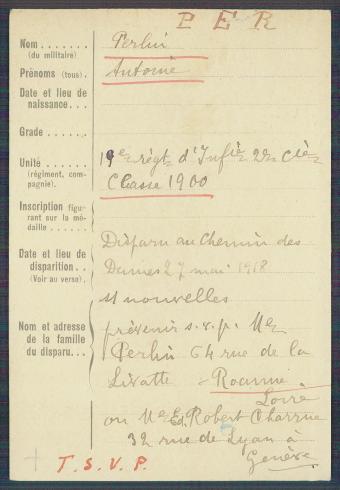 PER
Nom . . . . . . .
(du militaire)
Perlin
Prénoms (tous) .
Antoine
Date et lieu de
naissance . . .
Grade . . . . . .
Unité . . . . . .
(régiment, com-
pagnie).
9e régt d'Infie 2e Cie
Classe 1900
Inscription figu-
rant sur la mé-
daille . . . . . .
Date et lieu de
disparition . .
(Voir au verso).
Disparu au Chemin des
Dames 27 mai 1918
st nouvelles
Nom et adresse
de la famille
du disparu . . .
prévenir s.v.p. Me
Perlin 64 rue de la
Livatte - Roanne
Loire
ou Me Ed. Robert Charrue
32 rue de Lyon à
Genève
T.S.V.P.